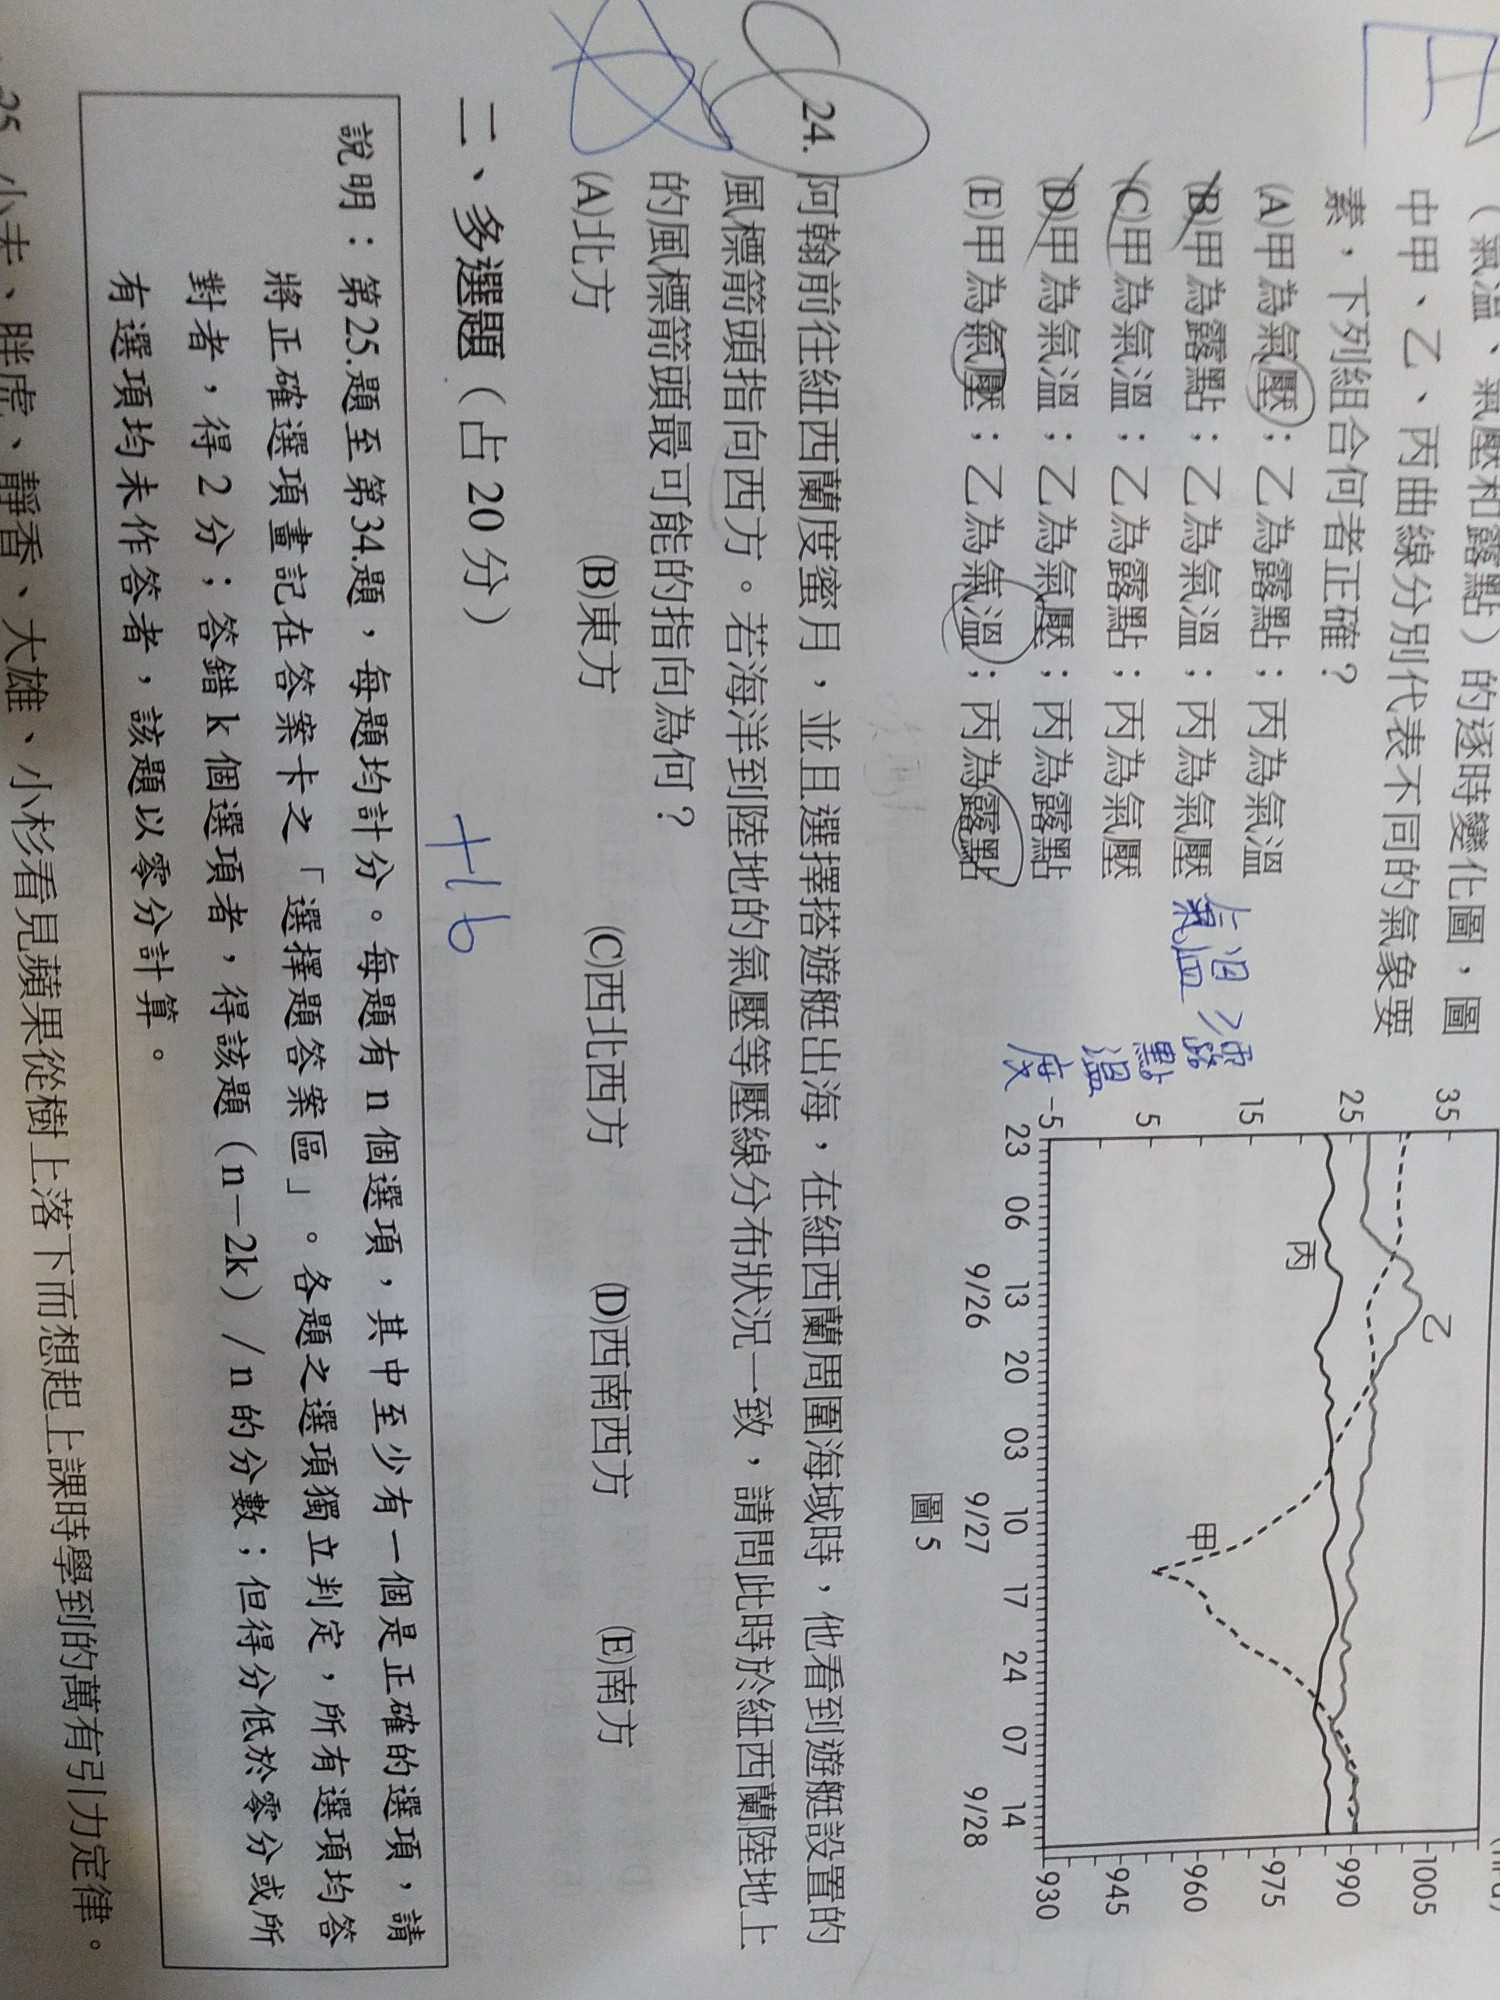 (氣溫、氣壓和露點)的逐時變化圖,圖
中甲、乙、丙曲線分別代表不同的氣象要
素,下列組合何者正確?
(A)甲為氣壓;乙為露點;丙為氣溫
(B)甲為露點;乙為氣溫;丙為氣壓
(C)甲為氣溫;乙為露點;丙為氣壓
(D)甲為氣溫;乙為氣壓;丙為露點
(E)甲為氣壓;乙為氣溫;丙為露點
氣溫 > 露點溫度
35
25
15
5
-5
乙
丙
甲
1005
990
975
960
945
930
23 06 13 20 03 10 17 24 07 14
9/26 9/27 9/28
圖5
24. 阿翰前往紐西蘭度蜜月,並且選擇搭遊艇出海,在紐西蘭周圍海域時,他看到遊艇設置的
風標箭頭指向西方。若海洋到陸地的氣壓等壓線分布狀況一致,請問此時於紐西蘭陸地上
的風標箭頭最可能的指向為何?
(A)北方 (B)東方 (C)西北西方 (D)西南西方 (E)南方
+16
二、多選題(占20分)
說明:第25.題至第34.題,每題均計分。每題有n個選項,其中至少有一個是正確的選項,請
將正確選項畫記在答案卡之「選擇題答案區」。各題之選項獨立判定,所有選項均答
對者,得2分;答錯k個選項者,得該題(n-2k)/n的分數;但得分低於零分或所
有選項均未作答者,該題以零分計算。
25. 小夫、胖虎、靜香、大雄、小杉看見蘋果從樹上落下而想起上課時學到的萬有引力定律。